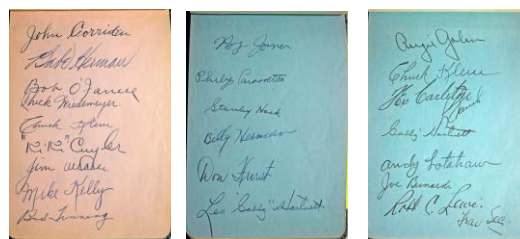 John Corriden
Babe Herman
Bob O'Farrell
Chick Wiedemeyer
Chuck Klein
"Ki Ki" Cuyler
Jim Weaver
Mike Kelly
Bud Tinning
Roy Joiner
Philip Cavarretta
Stanley Hack
Billy Herman
Don Hurst
Leo "Gabby" Hartnett
Augie Galan
Chuck Klein
Tex Carleton
Gabby Hartnett
Andy Lotshaw
Joe
Robt C. Lewis
Trav Sec.